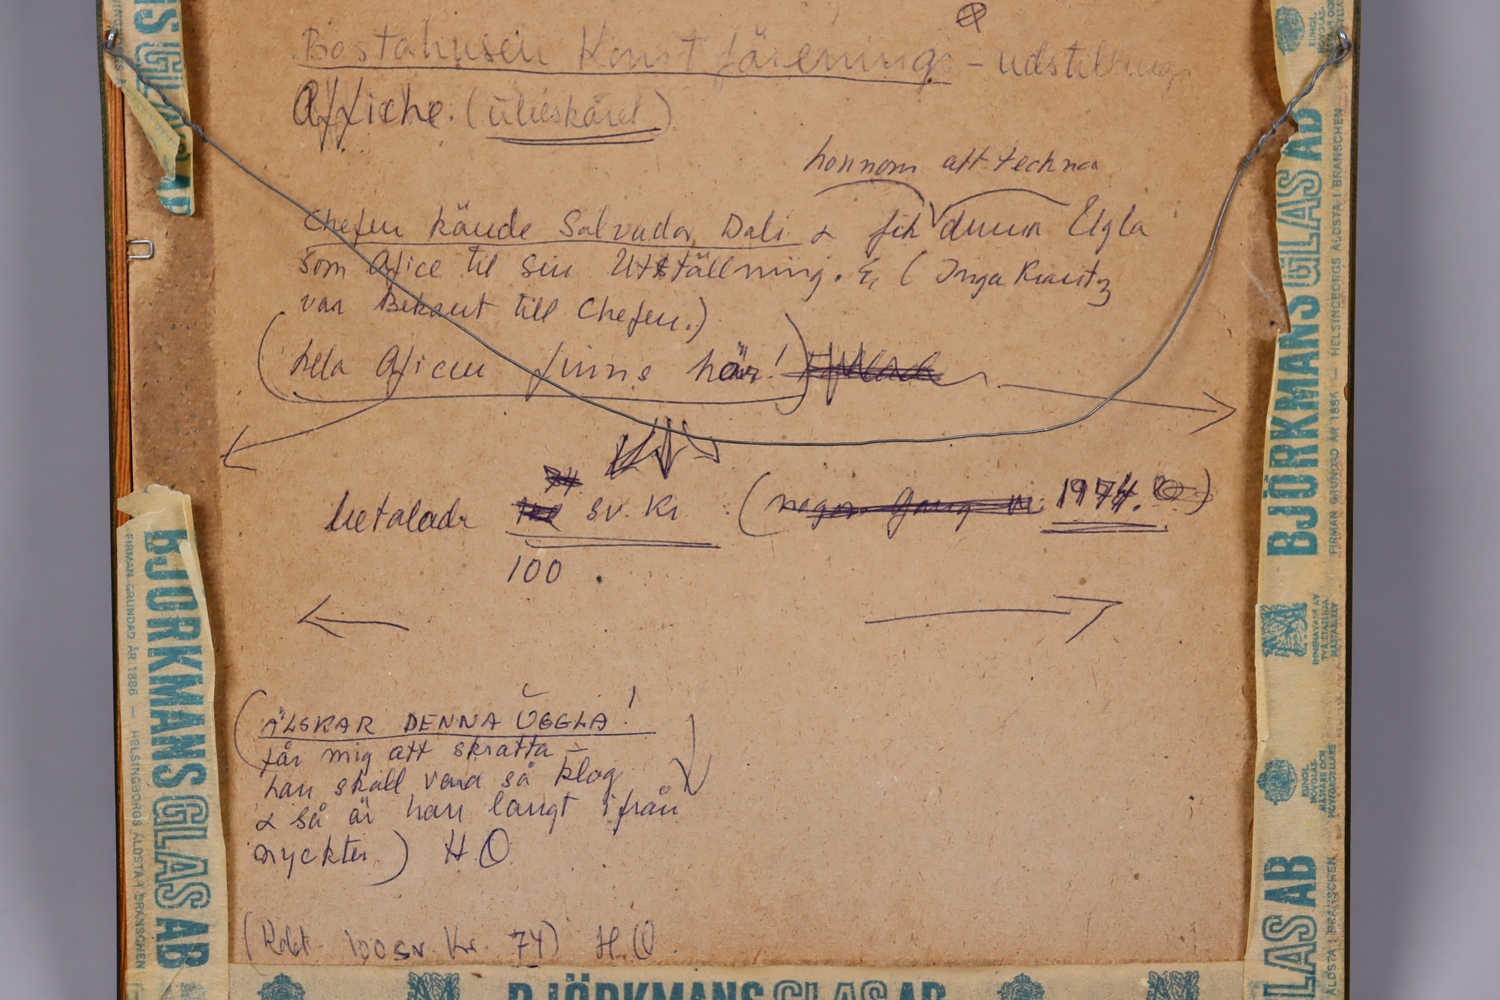 Bastahusein Konst förenings - udstilling
Affiche. (
honnom att techna
Chefen kände Salvador Dali & fik denna Ugla
som Afice til sin Utställning. & (Inga
var Bekant till Chefen.)
(hela Aficen finns här!)
betalade sv. Kr (1974.)
100
(ÄLSKAR DENNA UGGLA!
får mig att skratta -
han skall vara så klog
& så är han långt ifrån
nyckter) H.O
( 100 sv. Kr. 74) H.O.
GLAS AB
BJÖRKMANS GLAS AB
FIRMAN GRUNDAD ÅR 1886 — HELSINGBORGS ÄLDSTA I BRANSCHEN
BJÖRKMANS GLAS AB
FIRMAN GRUNDAD ÅR 1886 — HELSINGBORGS ÄLDSTA I BRANSCHEN
GLAS AB
ÄLDSTA I BRANSCHEN
BJÖRKMANS GLAS AB